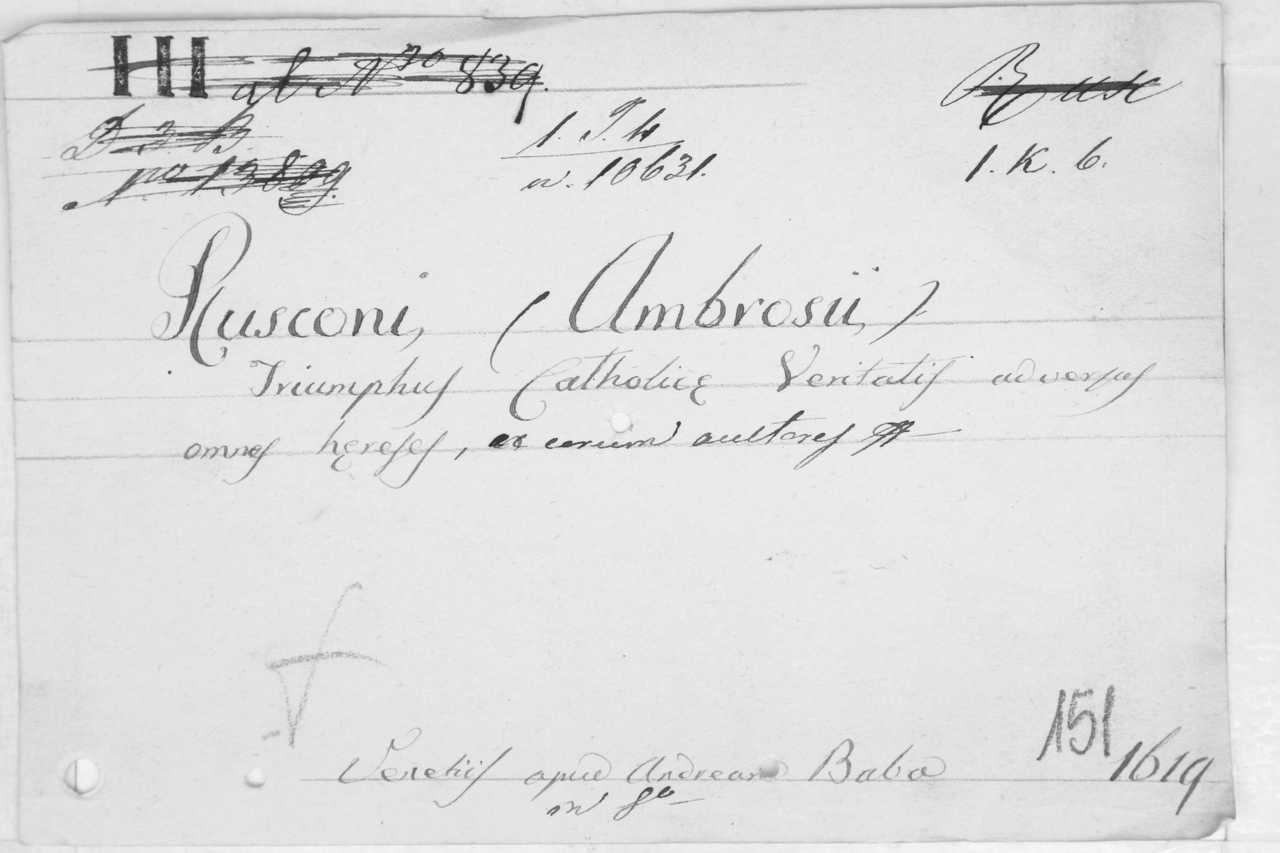 III ab Nro 839.
D 3 B.
No 13809.
1. T. 4
n. 10631.
1. K. 6.
Rusconi, (Ambrosii,)
Triumphus Catholicę Veritatis adversus
omnes hęreses, ac eorum auctores
Venetiis apud Andream Baba
in 8o
151
1619